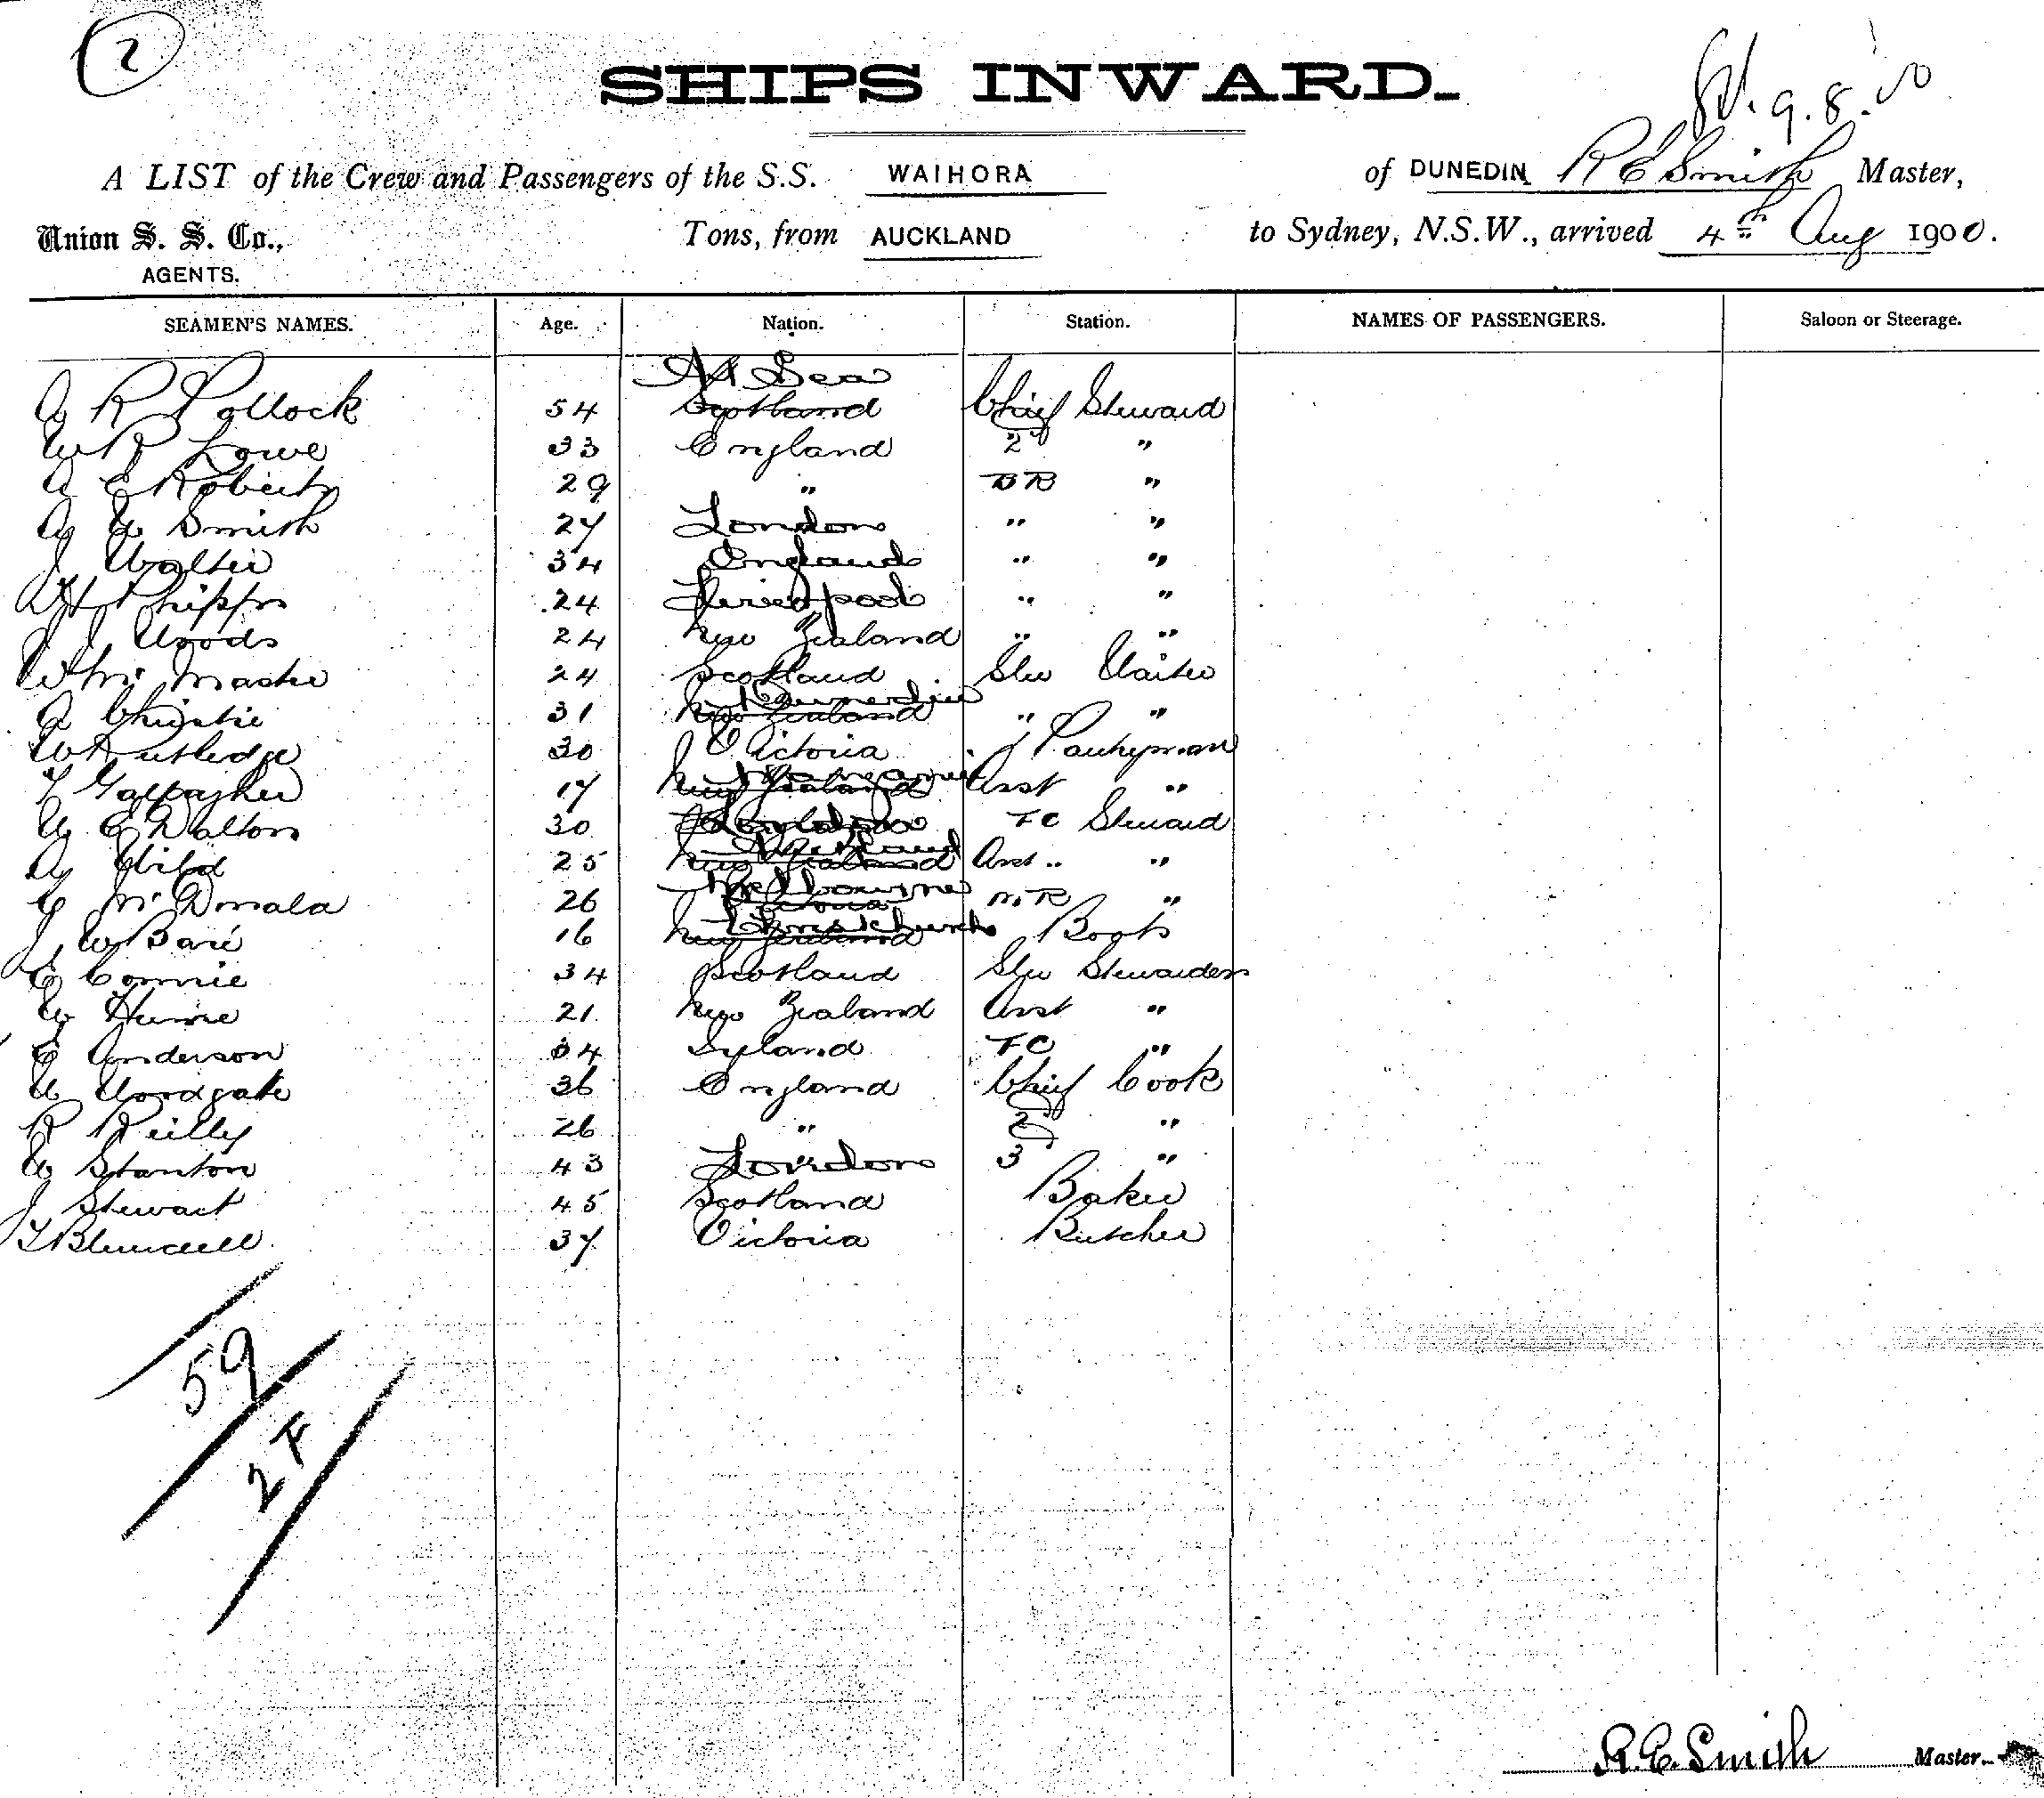 2
SHIPS INWARD.
9.8.00
A LIST of the Crew and Passengers of the S.S. WAIHORA of DUNEDIN R E Smith Master,
Union S. S. Co., Tons, from AUCKLAND to Sydney, N.S.W., arrived 4th Aug 1900.
AGENTS.
SEAMEN'S NAMES. Age. Nation. Station. NAMES OF PASSENGERS. Saloon or Steerage.
At Sea
A R Pollock 54 Scotland Chief Steward
W R Lowe 33 England 2d "
A E Roberts 29 " BR "
A W Smith 27 London " "
J Walter 34 England " "
W H Phipps 24 Liverpool " "
J J Woods 24 New Zealand " "
W McMaster 24 Scotland Sln Waiter
Dunedin
A Christie 31 New Zealand " "
W Rutledge 30 Victoria Pantryman
T Gallagher 17 New Zealand Asst "
W E Dalton 30 FC Steward
Auckland
A Wild 25 New Zealand Asst " "
Melbourne
G McDonald 26 Victoria M.R "
Christchurch
J W Barr 16 New Zealand Boots
E Comrie 34 Scotland Sln Stewardess
W Hume 21 New Zealand Asst "
E Anderson 34 Iyland FC "
W Woodgate 36 England Chief Cook
R Reilly 26 " 2d "
W Stanton 43 London 3 "
J Stewart 45 Scotland Baker
T Blundell 37 Victoria Butcher
59
2 F
R.E. Smith Master.